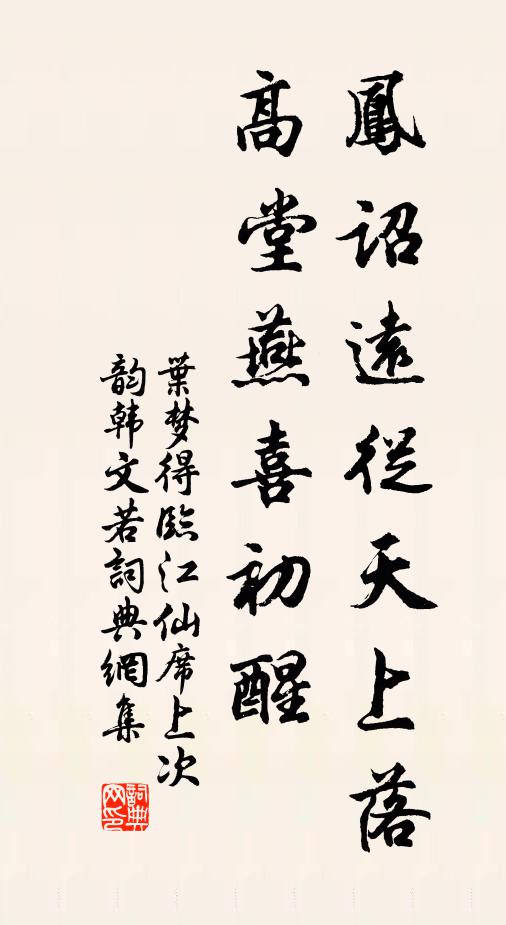 鳳詔遠從天上落
高堂燕喜初醒
葉梦得臨江仙席上次
韵韩文若詞典網集
詞典网印